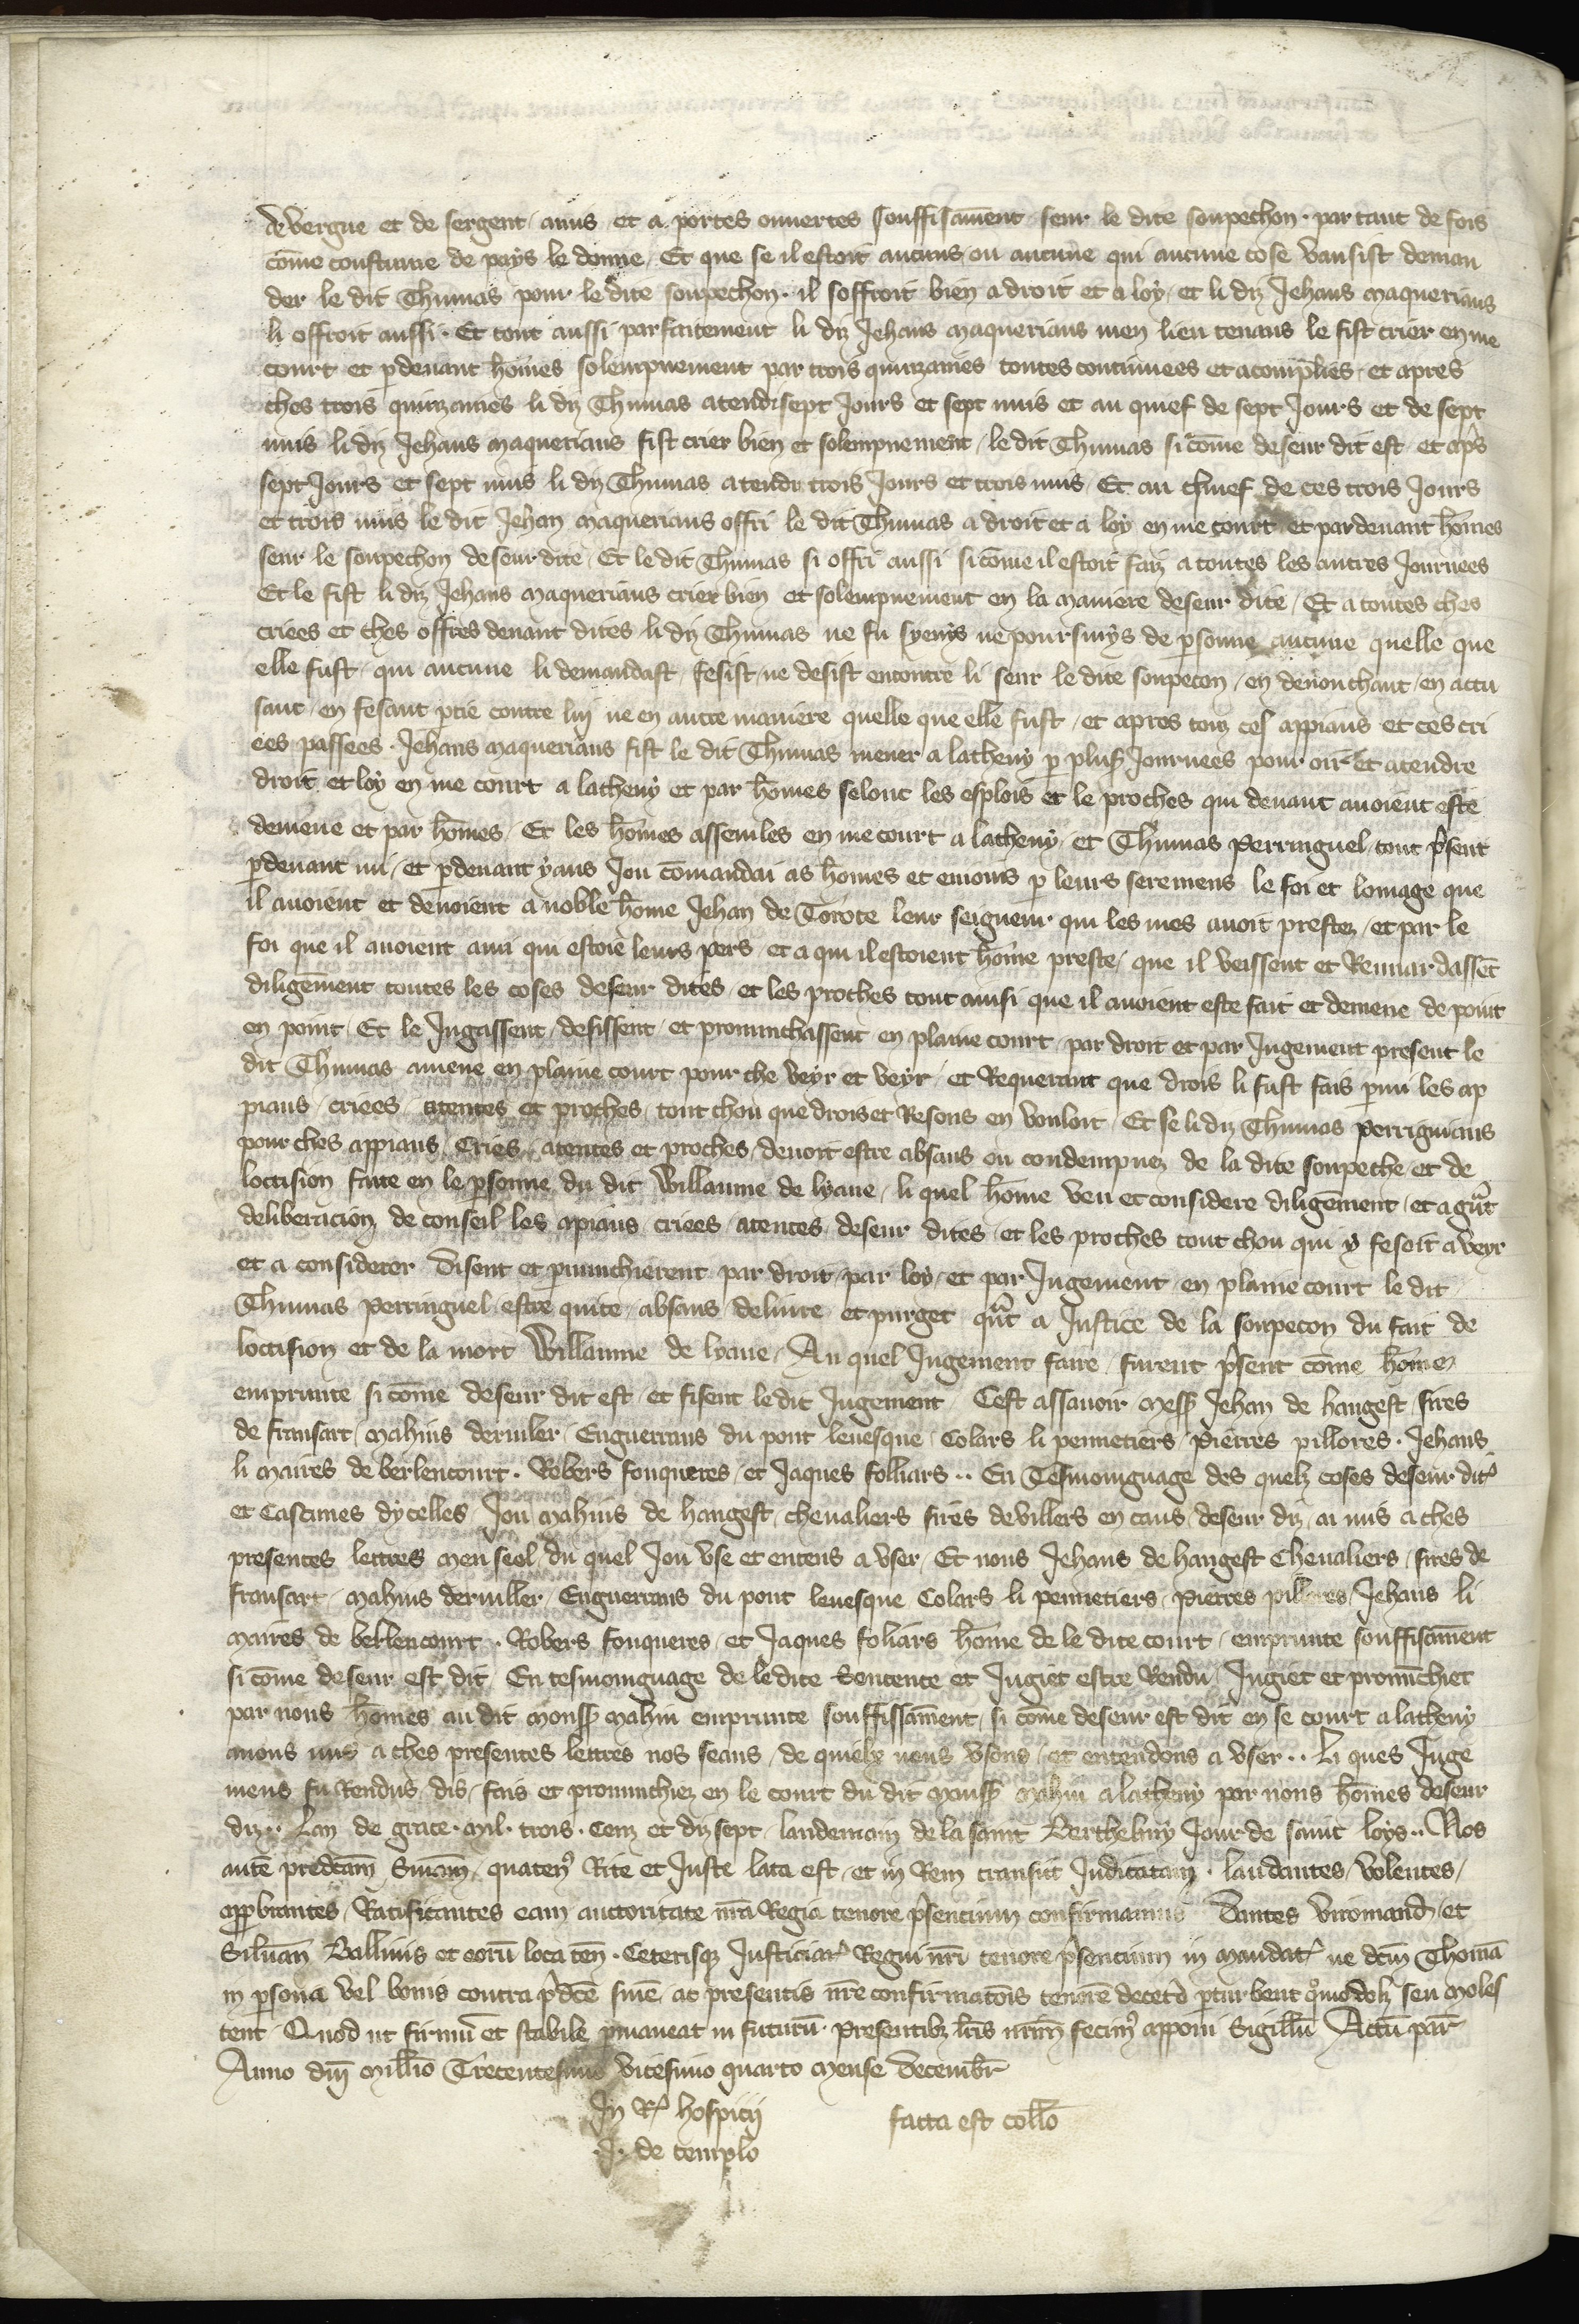 de vergue et de sergent / anus et a portes ouuertes souffisāment seur le dite soupechon · par tant de fois
cōme coustume de pays le donne / Et que se il estoit aucuns ou aucune qui aucune cose vausist deman
der le dit Thumas pour le dite soupechon · il soffroit bien a droit et a loy / et li diz Jehans maquerians
li offroit aussi · Et tout aussi parfaitement li diz Jehans maquerians men lieu tenans le fist crier en me
court et pdeuant hōmes solempnement par trois quinzaines toutes continuees et acomplies / et apres
ches trois quinzaines li diz Thumas atendi sept Jours et sept nuis et au quief de sept Jours et de sept
nuis li diz Jehans maquerians fist crier bien et solempnement / le dit Thumas si cōme deseur dit est et aps
sept Jours et sept nuis li diz Thumas atendi trois Jours et trois nuis / Et au chief de ces trois Jours
et trois nuis le dit Jehan maquerians offri le dit Thumas a droit et a loy en me court et pardeuant hōmes
seur le soupechon deseurdite / Et le dit Thumas si offri aussi si cōme il estoit faiz a toutes les autres Journees
Et le fist li diz Jehans maquerians crier bien et solempnement en la maniere deseur dite / Et a toutes ches
criees et ches offres deuant dites li diz Thumas ne fu syeuys ne poursuuys de psonne aucune quelle que
elle fust / qui aucune li demandast / fesist / ne desist encontre li seur le dite soupecon / en denonchant / en accu
sant / en fesant ptie contre luy ne en autre maniere quelle que elle fust / et apres touz ces appiaus et ces cri
ees passees · Jehans maquerians fist le dit Thumas mener a lacheny p plus Journees pour oir et atendre
droit et loy en me court a lacheny et par hōmes selonc les esplois et le proches qui deuant auoient este
demene et par hōmes / Et les hōmes assemles en me court a lacheny / et Thumas Perringuel tout psent
pdeuant mi / et pdeuant yaus Jou cōmandai as hōmes et enjoins p leurs seremens le foi et lomage que
il auoient et deuoient a noble hōme Jehan de Torote leur seigneur qui les mes auoit prestez / et par le
foi que il auoient a mi qui estoie leurs pers / et a qui il estoient hōme preste / que il veissent et Rewardassēt
diligēment toutes les coses deseur dites / et les proches tout ainsi que il auoient este fait et demene de point
en point · Et le Jugassent / desissent / et prononchassent en plaine court / par droit et par Jugement present le
dit Thumas amene en plaine court pour che veyr et veyr / et Requerant que drois li fust fais pmi les ap
piaus / criees / atentes et proches / tout chou que drois et Resons en vouloit / Et se li diz Thumas Perriguians
pour ches appiaus / Cries / atentes et proches / deuoit estre absaus ou condempnez de la dite soupeche / et de
loccision faite en le psonne du dit Willaume de lyaue / li quel hōme veu et considere diligēment / et a grāt
deliberacion de conseil les apiaus / criees / atentes / deseur dites / et les proches tout chou qui y fesoit a veyr
et a considerer Disent et pnunchierent par droit / par loy / et par Jugement / en plaine court le dit
Thumas Perringuel estre quite / absaus deliure et purget quāt a Justice de la soupecon du fait de
loccision et de la mort Willaume de lyaue / Au quel Jugement faire / furent psent cōme hōme
emprunte si cōme deseur dit est / et fisent le dit Jugement Cest assauoir mess Jehan de hangest / sires
de fransart / Mahius deruiler / Enguerrans du pont leuesque / Colars li pennetiers / Pierres pillores · Jehans
li maires de berlencourt · Robers fouqueres / et Jaques folliars ·· En Tesmoinguage des quelz coses deseur dit
et Cascunes dycelles / Jou mahius de hangest / cheualiers sires de villers en caus / deseur diz / ai mis a ches
presentes lettres men seel / du quel Jou vse et entens a vser / Et nous Jehans de hangest Cheualiers / sires de
fransart / Mahius deruiller / Enguerrans du pont leuesque Colars li pennetiers / Pierres pilleres / Jehans li
maires de berlencourt · Robers fouqueres / et Jaques foliars hōme de le dite court / emprunte souffisāment
si cōme deseur est dit / En tesmoinguage de le dite Sentente et Jugiet estre Rendu / Jugiet et pronūchiet
par nous hōmes au dit monss mahiu emprunte souffissāment / si cōme deseur est dit en se court a lacheny
auons mis a ches presentes lettres nos seaus / de quielx nous vsons / et entendons a vser ·· Li ques Juge
mens fu Rendus / dis / fais et pronunchiez en le court du dit monss mahiu a lacheny par nous hōmes deseur
diz ·· Lan de grace · mil · trois · Cenz et dizsept / landemain de la saint Berthelmy Jour de saint loys ·· Nos
autē predcām Sniām / quaten Rite et Juste lata est / et in Rem transiit Judicatam · laudantes / volentes /
approbantes / Ratificantes eam auctoritate nrā Regia tenore psentium confirmamus Dantes Viromand / et
Siluan Balliuis et eorū loca ten · Ceterisq Justiciar Regni nrī tenore psentium in mandat / ne dcm Thomā
in psona vel bonis contra pdce snie ac presentis nre confirmatois tenorē decetō pturbent qmodolz seu moles
tent / Quod ut firmū et stabile pmaneat in futurū · Presentibz lris nrm fecim apponi Sigillū Actū par
Anno dnī millīo Trecentesimo vicesimo quarto mense Decembr
In R hospicij facta est collo
· J · de templo